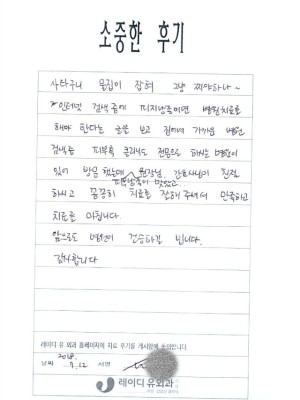 소중한 후기
사타구니 멍울이 잡혀 그냥 찌야하나~
인터넷 검색중에 피지낭종이면 병원치료를
해야 한다는 글을 보고 집에서 가까운 병원
검색중 피부쪽 클리닉도 전문으로 하시는 병원이
있어 방문했는데 원장님, 간호사님이 친절
피부낭종이 맞았고
하시고 꼼꼼히 치료를 잘해주셔서 만족하고
치료를 마칩니다.
앞으로도 병원이 건승하길 빕니다.
감사합니다
레이디 유 외과 홈페이지에 치료 후기를 게시함에 동의합니다.
날짜 2018. 9. 12 서명
레이디유외과